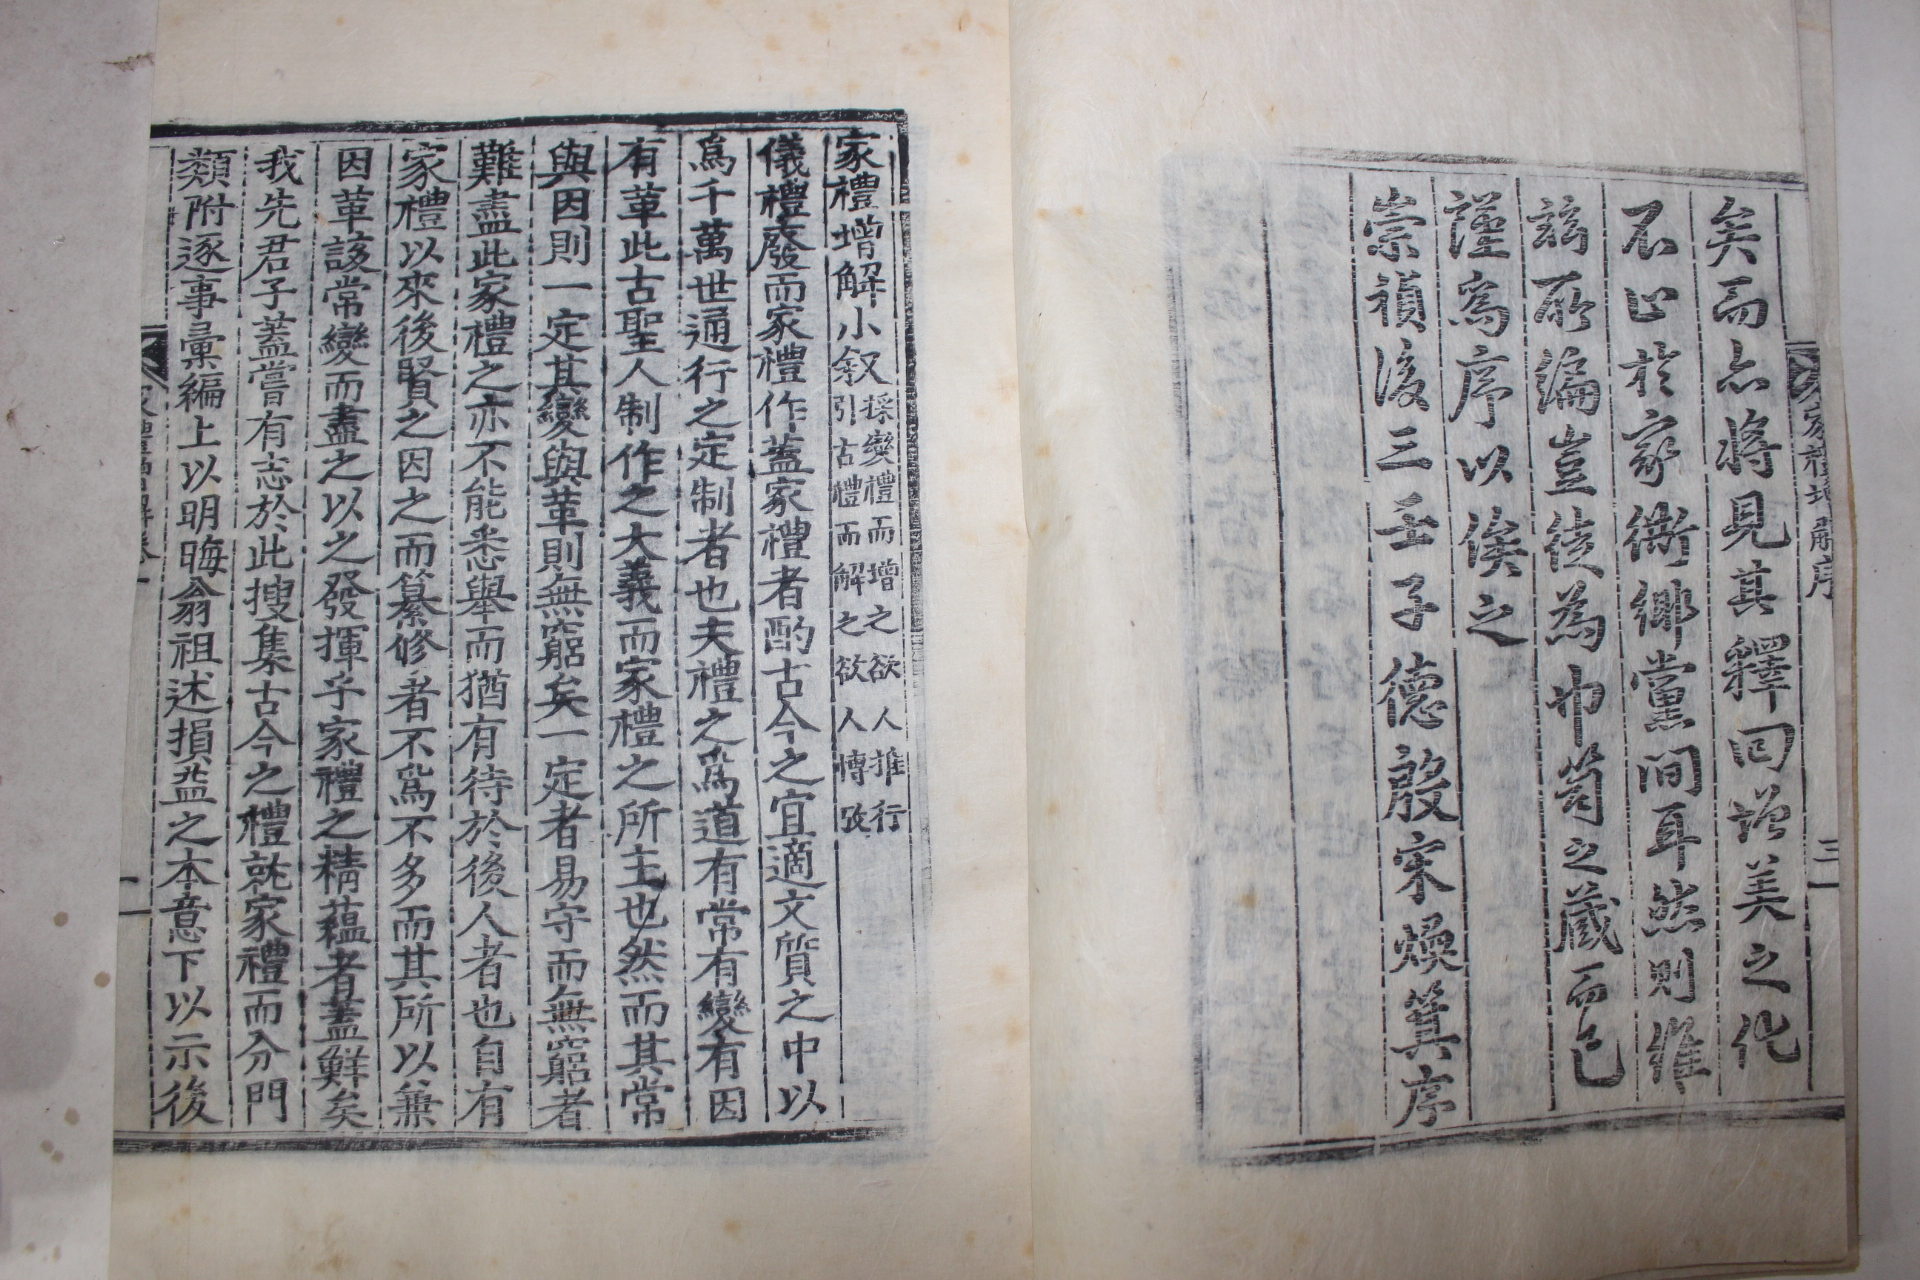 矣而亦將見其釋回增美之化
不止於家衖鄉黨間耳然則維
玆所編豈徒為巾笥之藏而已
謹為序以俟之
崇禎後三壬子德殷宋煥箕序
家禮增解序
三
家禮增解小叙
採變禮而增之欲人推行
引古禮而解之欲人博攷
儀禮廢而家禮作蓋家禮者酌古今之宜適文質之中以
爲千萬世通行之定制者也夫禮之爲道有常有變有因
有革此古聖人制作之大義而家禮之所主也然而其常
與因則一定其變與革則無窮矣一定者易守而無窮者
難盡此家禮之亦不能悉舉而猶有待於後人者也自有
家禮以來後賢之因之而纂修者不爲不多而其所以兼
因革該常變而盡之以之發揮乎家禮之精蘊者蓋鮮矣
我先君子蓋嘗有志於此搜集古今之禮就家禮而分門
類附逐事彙編上以明晦翁祖述損益之本意下以示後
家禮增解卷一
一